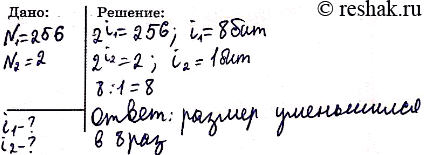 © reshak.ru
Дано:
N₁=256
N₂=2
i₁-?
i₂-?
Решение:
2^i₁=256; i₁=8бит
2^i₂=2; i₂=1бит
8:1=8
Ответ: размер уменьшился
в 8 раз